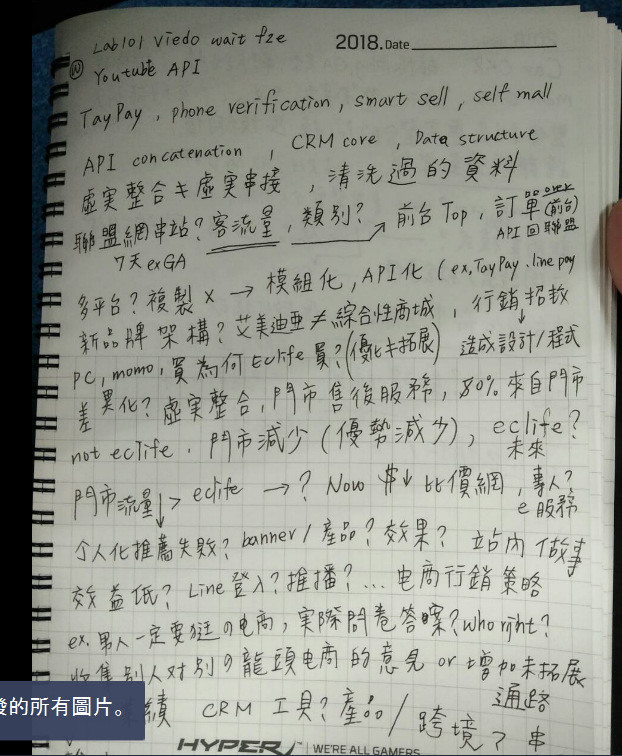 Lab101 Viedo wait fze
2018. Date
Ⓝ Youtube API
TayPay, phone verification, smart sell, self mall
API concatenation, CRM core, Data structure
虛実整合キ虛実串接, 清洗過的資料
聯盟網串站? 客流量, 類別? 前台 Top, 訂單(前台)
7天 ex GA API 回聯盟
多平台? 複製 x → 模組化, API化 (ex, TayPay, line pay
新品牌架構? 艾美迪亜 ≠ 綜合性商城, 行銷招數
PC, momo, 買為何 Eclife 買? (優化キ拓展) 造成設計/程式
差異化? 虛実整合, 門市售後服務, 80% 來自門市
not eclife. 門市減少 (優勢減少), eclife?
未來
門市流量 > eclife → ? Now $↓ 比價網, 專人?
e 服務
個人化推薦失敗? banner / 產品? 效果? 站內做事
效益低? Line 登入? 推播? ... 电商行銷策略
ex. 男人一定要逛の电商, 実際問卷答案? who right?
收集別人对別の龍頭电商的意見 or 增加未拓展
通路
的所有圖片。
績 CRM 工具? 產品 / 跨境? 串
HYPERX WE'RE ALL GAMERS